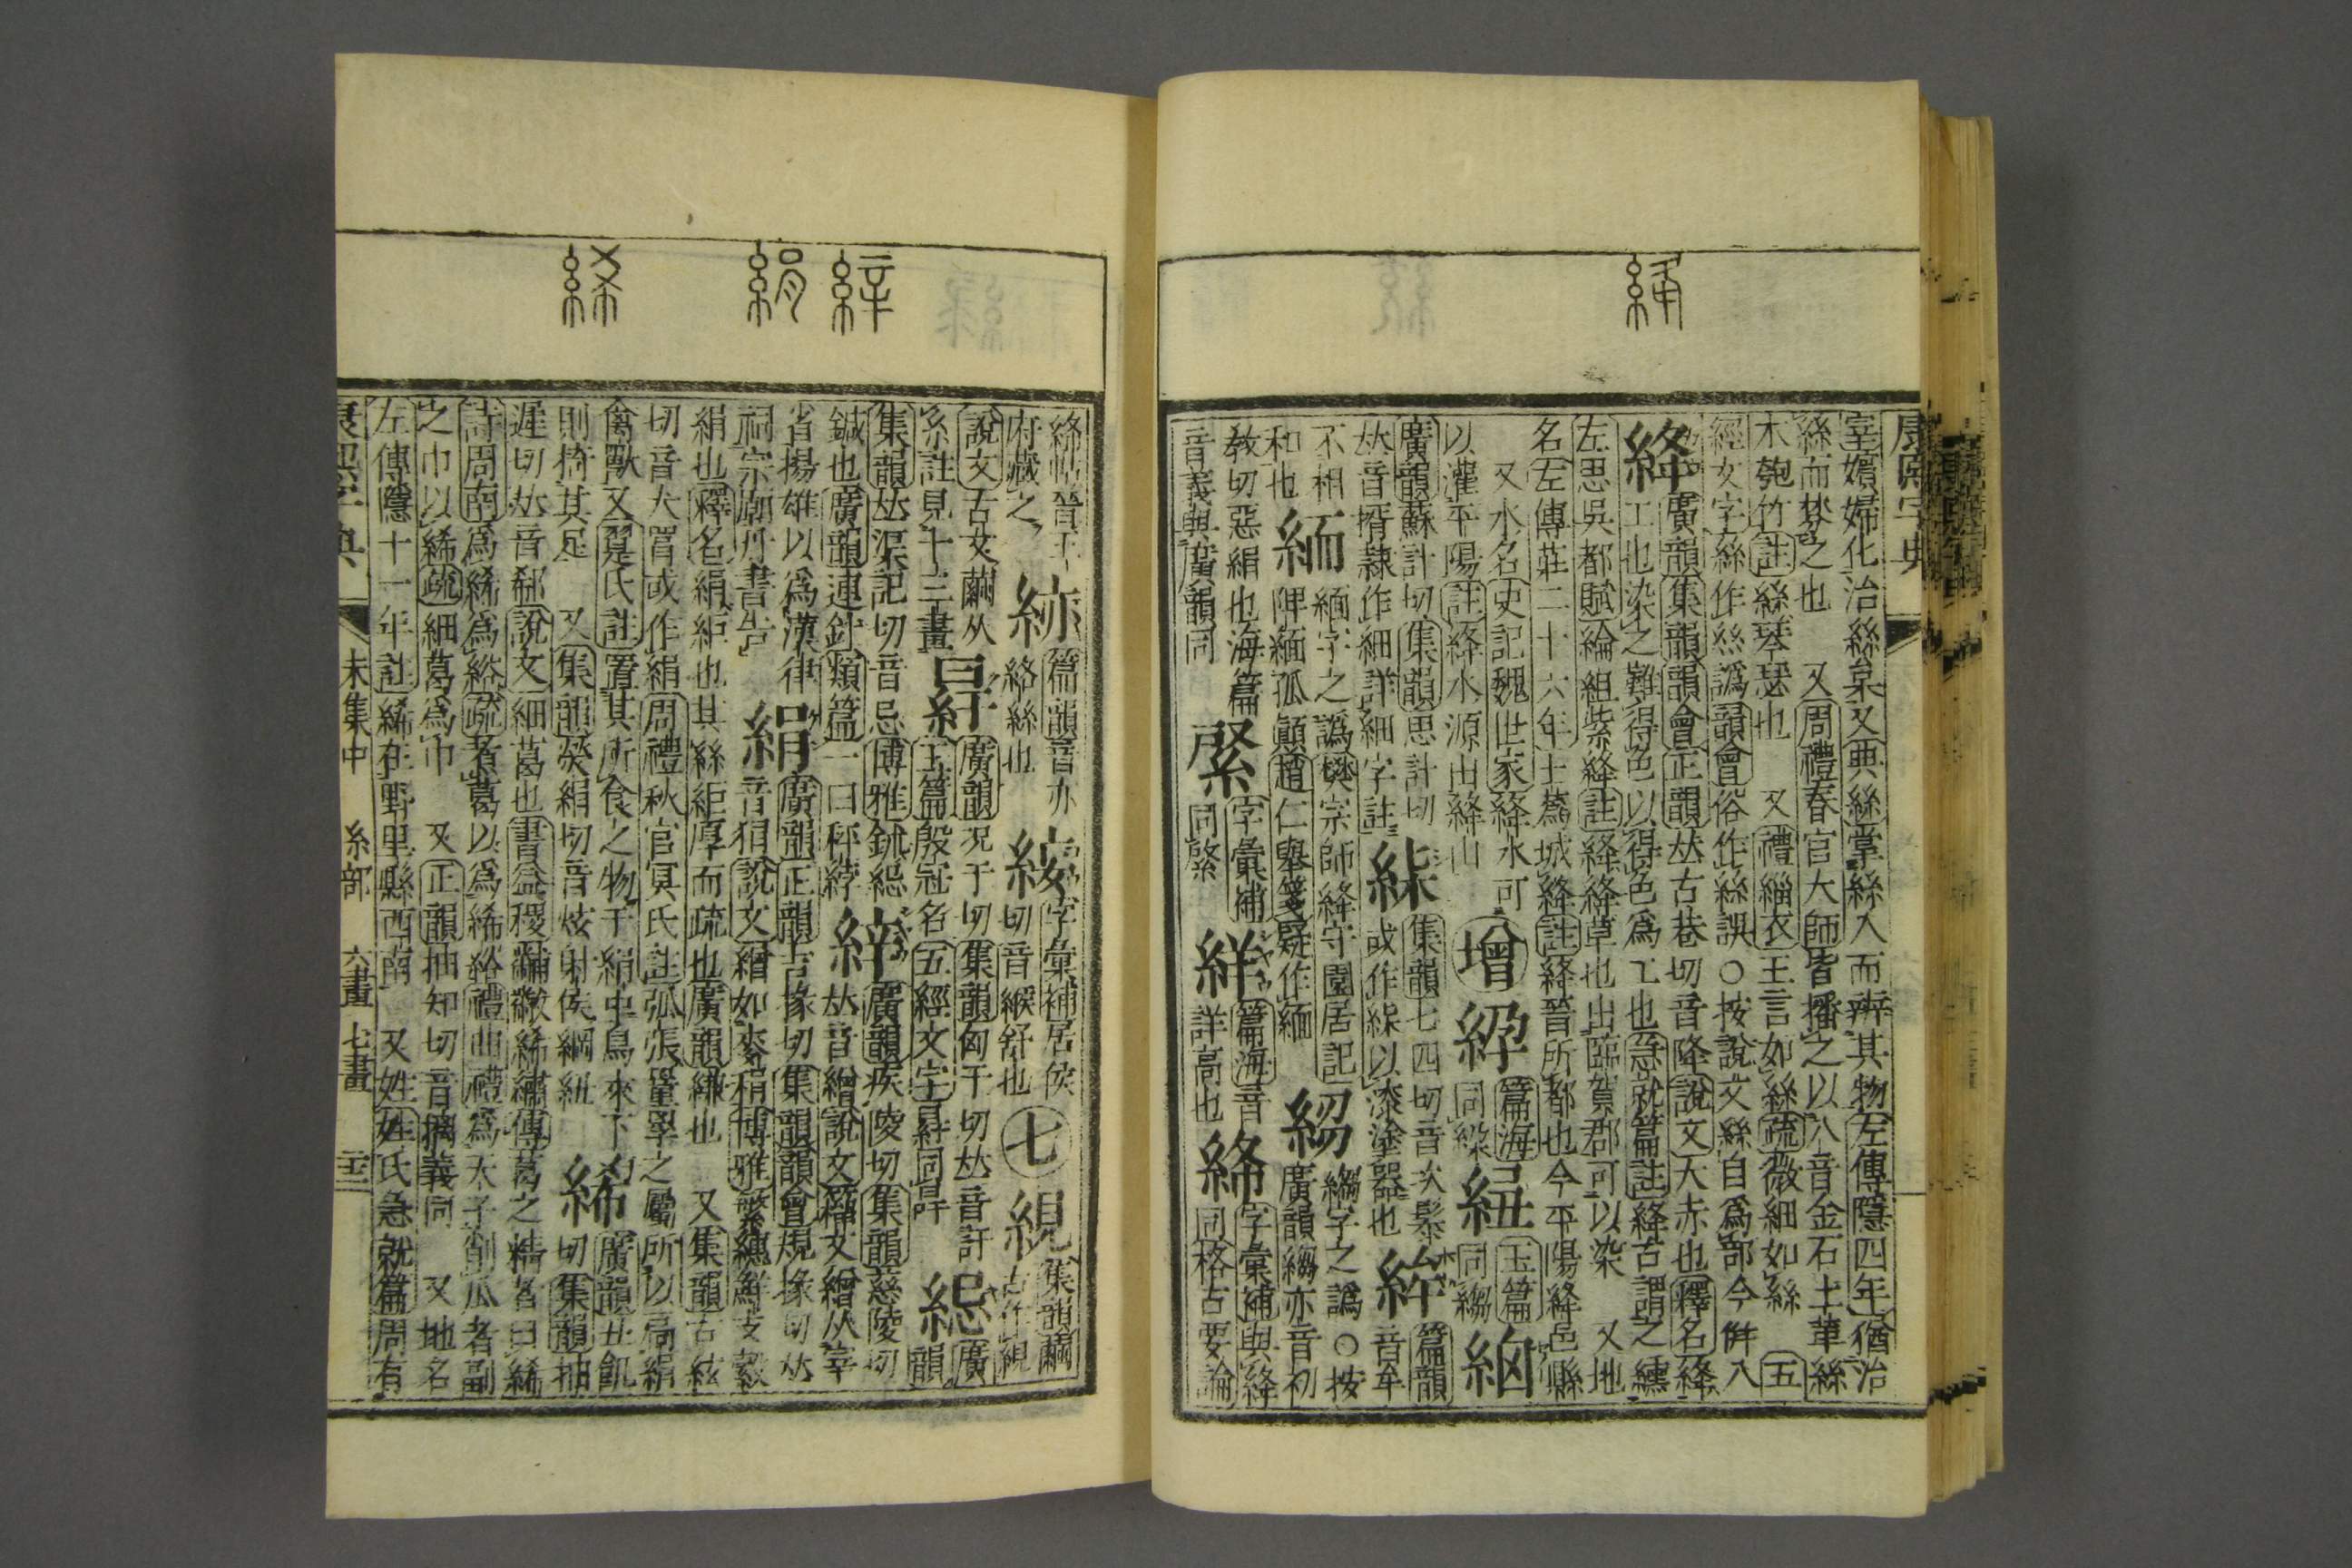 絳
康熙字典
室嬪婦化治絲枲又典絲掌絲入而辨其物左傳隱四年猶治
絲而棼之也 又周禮春官大師皆播之以八音金石土革絲
木匏竹註絲琴瑟也 又禮緇衣王言如絲疏微細如絲 五
經文字絲作絲譌韻會俗作絲誤○按說文絲自爲部今倂入
絳
廣韻集韻韻會正韻𠀤古巷切音降說文大赤也釋名絳
工也染之難得色以得色爲工也急就篇註絳古謂之纁
左思吳都賦綸組紫絳註絳絳草也出臨賀郡可以染 又地
名左傳莊二十六年士蔿城絳註絳晉所都也今平陽絳邑縣
又水名史記魏世家絳水可
以灌平陽註絳水源出絳山
增
篇海
同
紐
玉篇
同縐
廣韻蘇計切集韻思計切
𠀤音揟隸作細詳細字註
集韻七四切音次髹
或作以漆塗器也
篇韻
音牟
不相
和也
緬字之譌樊宗師絳守園居記
緬孤顛仁舉箋疑作緬
縐字之譌○按
廣韻縐亦音初
教切惡絹也海篇
音義與廣韻同
綮
字彙補
同綮
絴
篇海音
詳高也
字彙補與絳
同格古要論
絳 絹 絺
絳帖晉王
府藏之
篇韻音亦
絡絲也
字彙補居侯
切音緱舒也
七
絸
集韻繭
古作絸
說文古文繭从
糸註見十三畫
廣韻況于切集韻匈于切𠀤音訏
玉篇殷冠名五經文字同冔
廣
韻
集韻𠀤渠記切音忌博雅鉥
鍼也廣韻連針類篇一曰秤
縡
廣韻疾陵切集韻慈陵切
𠀤音繒說文籀文繒从宰
省揚雄以爲漢律
祠宗廟丹書告
絹
廣韻正韻吉掾切集韻韻會規掾切𠀤
音狷說文繒如麥稍博雅繁總鮮支縠
絹也釋名絹䋎也其絲䋎厚而疏也廣韻縑也 又集韻古泫
切音犬罥或作絹周禮秋官冥氏註弧張罿罦之屬所以扃絹
禽獸又翨氏註置其所食之物于絹中鳥來下
則掎其足 又集韻熒絹切音炫射侯綱紐
絺
廣韻丑飢
切集韻抽
遲切𠀤音郗說文細葛也書益稷黼黻絺繡傳葛之精者曰絺
詩周南爲絺爲綌疏煮葛以爲絺綌禮曲禮爲天子削瓜者副
之巾以絺疏細葛爲巾 又正韻抽知切音摛義同 又地名
左傳隱十一年註絺在野王縣西南 又姓姓氏急就篇周有
康熙字典 未集中 糸部 六畫 七畫